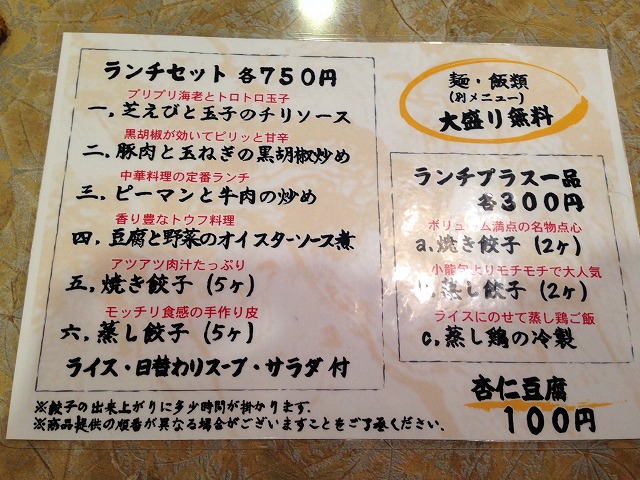 ランチセット 各750円
プリプリ海老とトロトロ玉子
一.芝えびと玉子のチリソース
黒胡椒が効いてピリッと甘辛
二.豚肉と玉ねぎの黒胡椒炒め
中華料理の定番ランチ
三.ピーマンと牛肉の炒め
香り豊なトウフ料理
四.豆腐と野菜のオイスターソース煮
アツアツ肉汁たっぷり
五.焼き餃子(5ヶ)
モッチリ食感の手作り皮
六.蒸し餃子(5ヶ)
ライス・日替わりスープ・サラダ付
※餃子の出来上がりに多少時間が掛かります.
※商品提供の順番が異なる場合がございますことをご了承ください.
麺・飯類
(別メニュー)
大盛り無料
ランチプラス一品
各300円
ボリューム満点の名物点心
a.焼き餃子(2ヶ)
小籠包よりモチモチで大人気
蒸し餃子(2ヶ)
ライスにのせて蒸し鶏ご飯
c.蒸し鶏の冷製
杏仁豆腐
100円